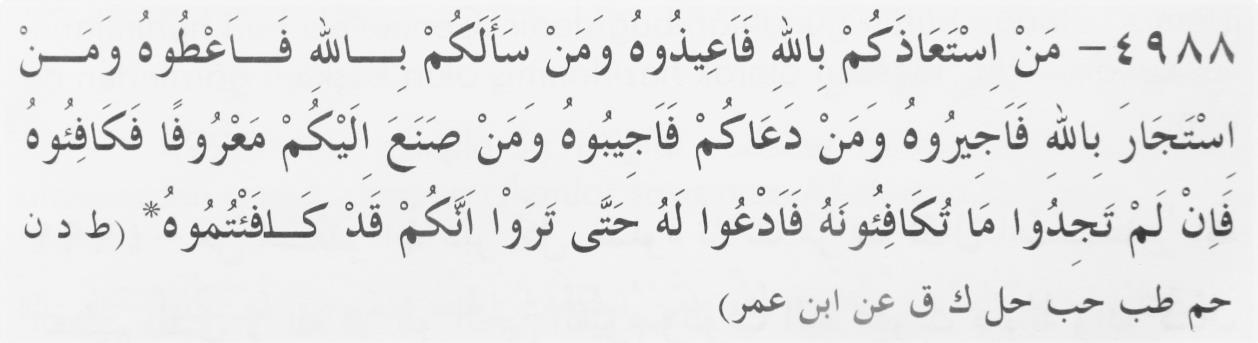 ٤٩٨٨- مَنْ اِسْتَعَاذَكُمْ بِاللّٰهِ فَاَعِيذُوهُ وَمَنْ سَأَلَكُمْ بِـــاللّٰهِ فَـــاَعْطُوهُ وَمَـــنْ
اِسْتَجَارَ بِاللّٰهِ فَاَجِيرُوهُ وَمَنْ دَعَاكُمْ فَاَجِيبُوهُ وَمَنْ صَنَعَ اِلَيْكُمْ مَعْرُوفًا فَكَافِئُوهُ
فَاِنْ لَمْ تَجِدُوا مَا تُكَافِئُونَهُ فَادْعُوا لَهُ حَتَّى تَروْا اَنَّكُمْ قَدْ كَـــافَئْتُمُوهُ* (ط د ن
حم طب حب حل ك ق عن ابن عمر)